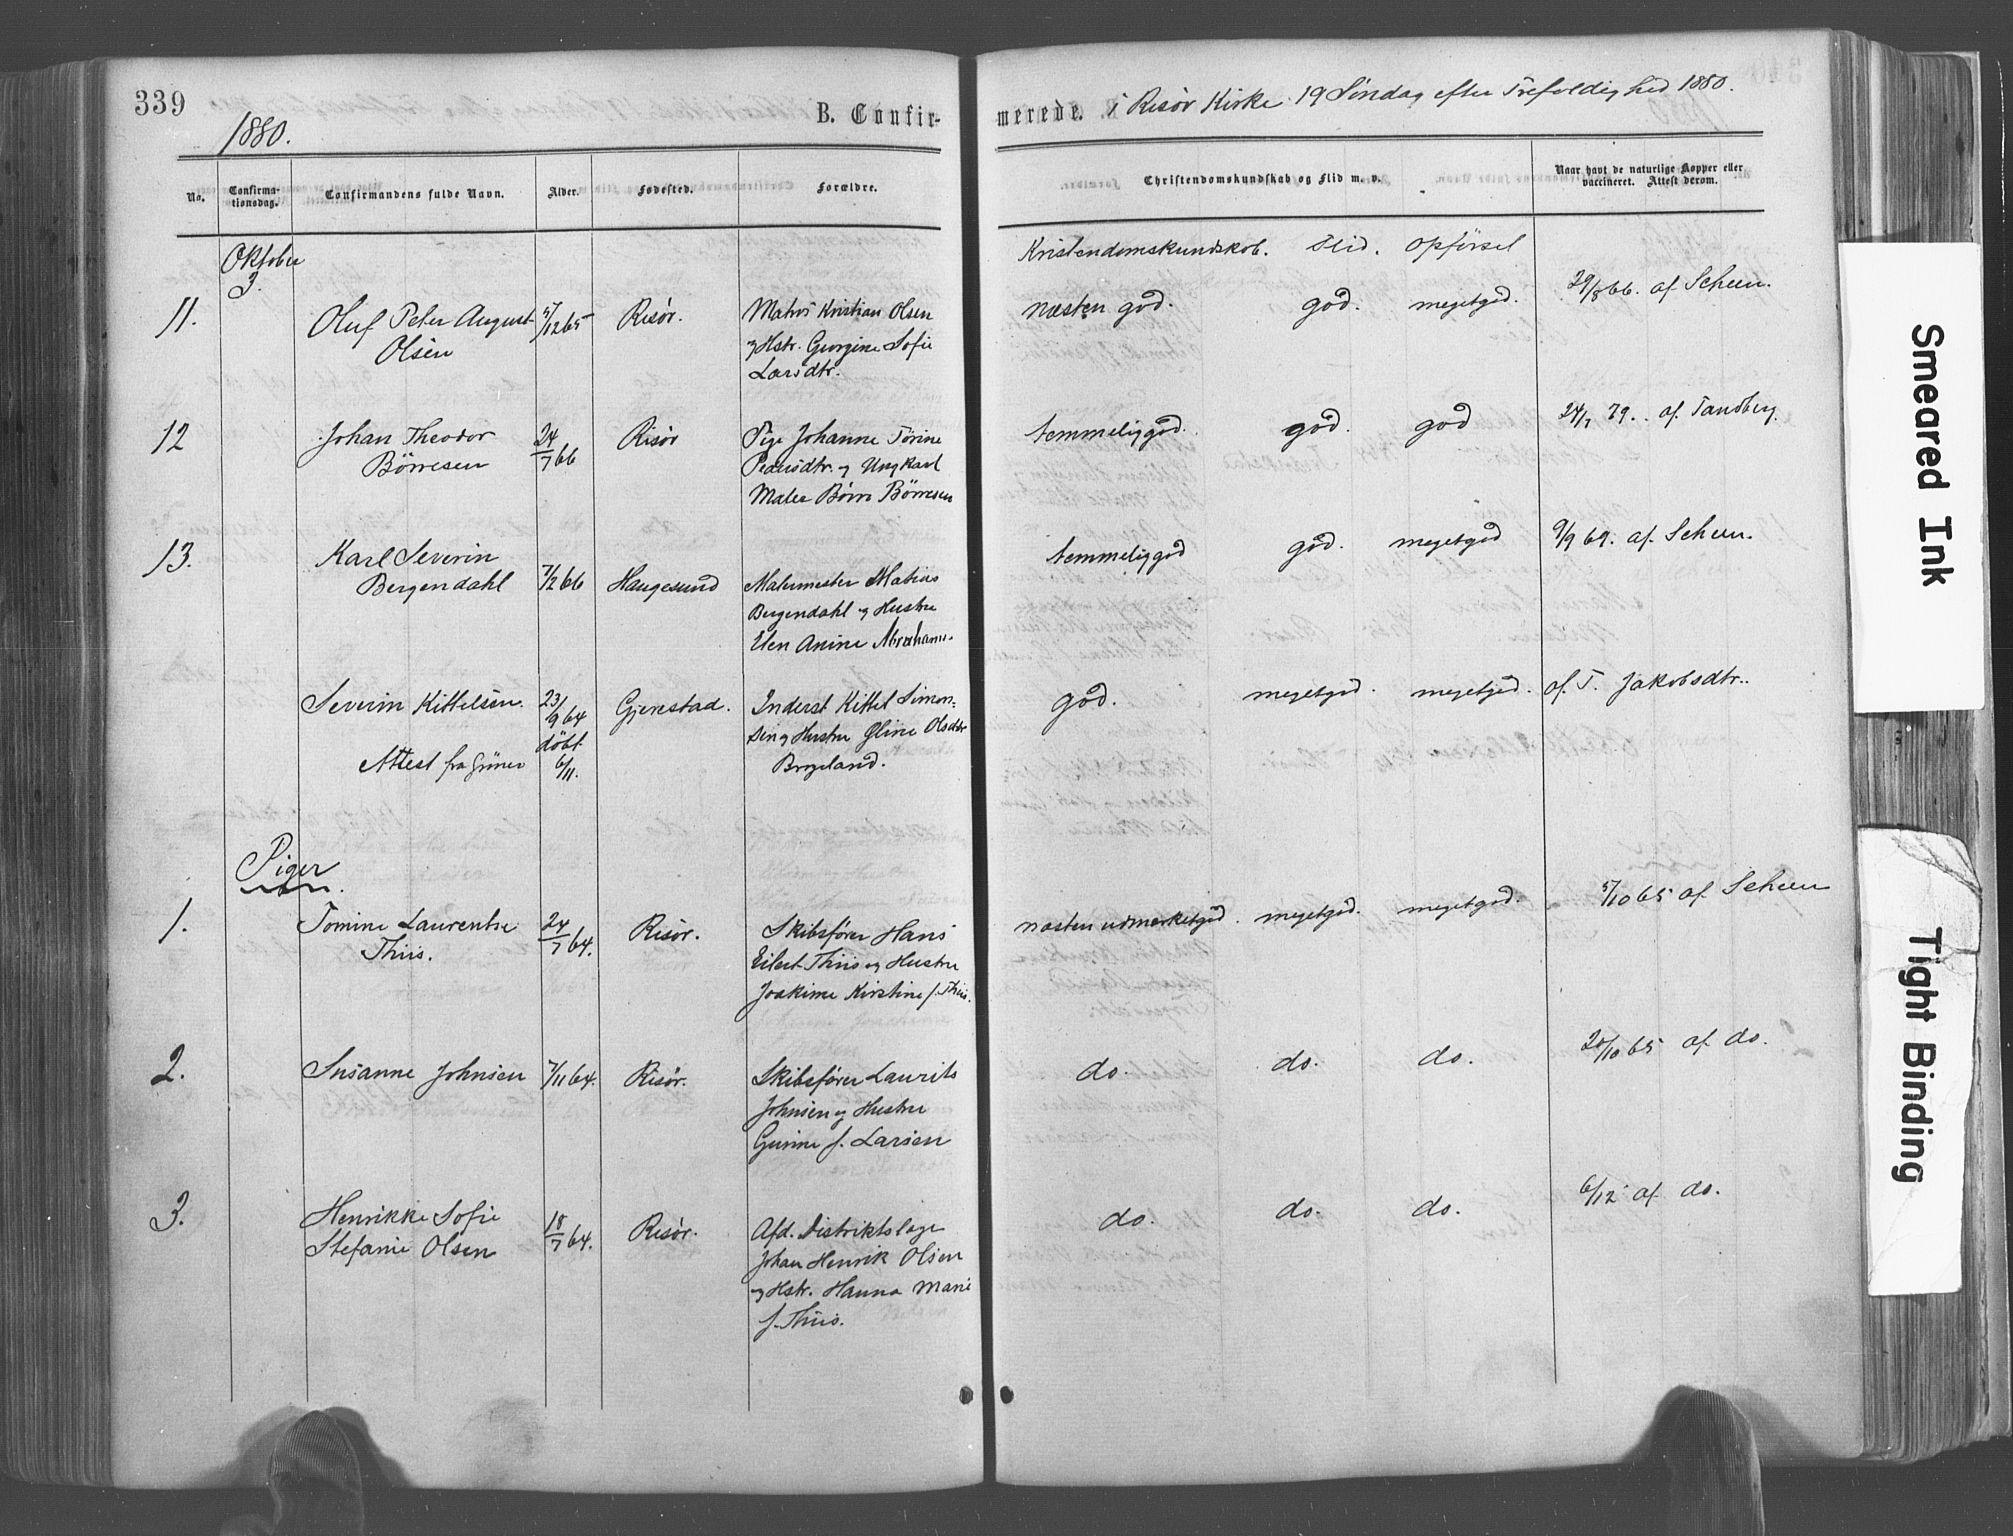 339
1880.
B. Confir-
merede. i Risør Kirke 19 Søndag efter Trefoldighed 1880.
No.
Confirma-
tionsdag.
Confirmandens fulde Navn.
Alder.
Fødested.
Forældre.
Christendomskundskab og Flid m. v.
Naar havt de naturlige Kopper eller
vaccineret. Attest derom.
Oktober
3.
Kristendomskundskab. Flid. Opførsel
11.
Oluf Peter August
Olsen
5/12 65
Risør.
Kristian Olsen
og Hstr. Georgine Sofie
Larsdtr.
næsten god. god. megetgod. 29/8 66. af Scheen.
12
Johan Theodor
Börresen
24/7 66
Risør
Pige Johanne Törine
Pedersdtr. og Ungkarl
Maler Börre Börresen
temmeliggod. god. god 24/7 79. af Tandberg.
13.
Karl Severin
Bergendahl
7/2 66
Haugesund
Malermester Matias
Bergendahl og Hustru
Elen Anine Abrahams.
temmeliggod god. megetgod 9/9 69. af Scheen.
Severin Kittelsen.
23/9 64
döbt
6/11.
Gjerestad.
Inderst Kittel Simon-
sen og Hustru Oline Olsdtr
Attest fra
god. megetgod. megetgod. af T. Jakobsdtr.
Piger
1.
Tomine Laurentse
Thiis.
24/7 64.
Risør.
Skibsfører Hans
Eilert Thiis og Hustru
Joakime Kirstine f. Thiis.
næsten udmerketgod. megetgod. megetgod. 5/10 65 af Scheen
2.
Susanne Johnsen
7/11 64.
Risør.
Skibsfører Laurits
Johnsen og Hustru
Gurine f. Larsen
do. do. do. 20/10 65 af do.
3.
Henrikke Sofie
Stefanie Olsen
18/7 64.
Risør.
Afd. Distriktslæge
Johan Henrik Olsen
og Hstr. Hanna Marie
f. Thiis.
do. do. do. 6/12 af do.
Smeared Ink
Tight Binding